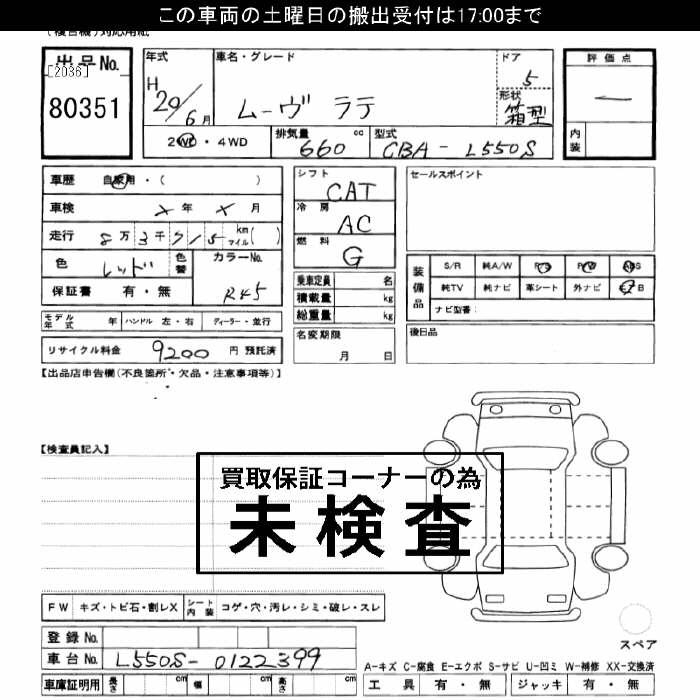 この車両の土曜日の搬出受付は17:00まで
出品No.
[2036]
80351
年式
H 20/6月
車名・グレード
ムーヴ ラテ
ドア
5
形状
箱型
評価点
一
内装
2WD・4WD
排気量 cc
660
型式
CBA-L550S
車歴 自家用・( )
車検 × 年 × 月
走行 8万3千715 km マイル( )
色 レッド
色替
カラーNo.
R45
保証書 有・無
シフト
CAT
冷房
AC
燃料
G
乗車定員 名
積載量 kg
総重量 kg
セールスポイント
装備品
S/R 純A/W P/S P/W ABS
純TV 純ナビ 革シート 外ナビ エアB
ナビ型番:
モデル年式 年 ハンドル 左・右 ディーラー・並行
名変期限
月 日
後日品
リサイクル料金 9200 円 預託済
【出品店申告欄(不良箇所・欠品・注意事項等)】
【検査員記入】
買取保証コーナーの為
未検査
FW キズ・トビ石・割レX シート内装 コゲ・穴・汚レ・シミ・破レ・スレ
登録No.
車台No. L550S-0122399
スペア
A-キズ C-腐食 E-エクボ S-サビ U-凹ミ W-補修 XX-交換済
車庫証明用 長さ cm 幅 cm 高さ cm
工具 有・無 ジャッキ 有・無